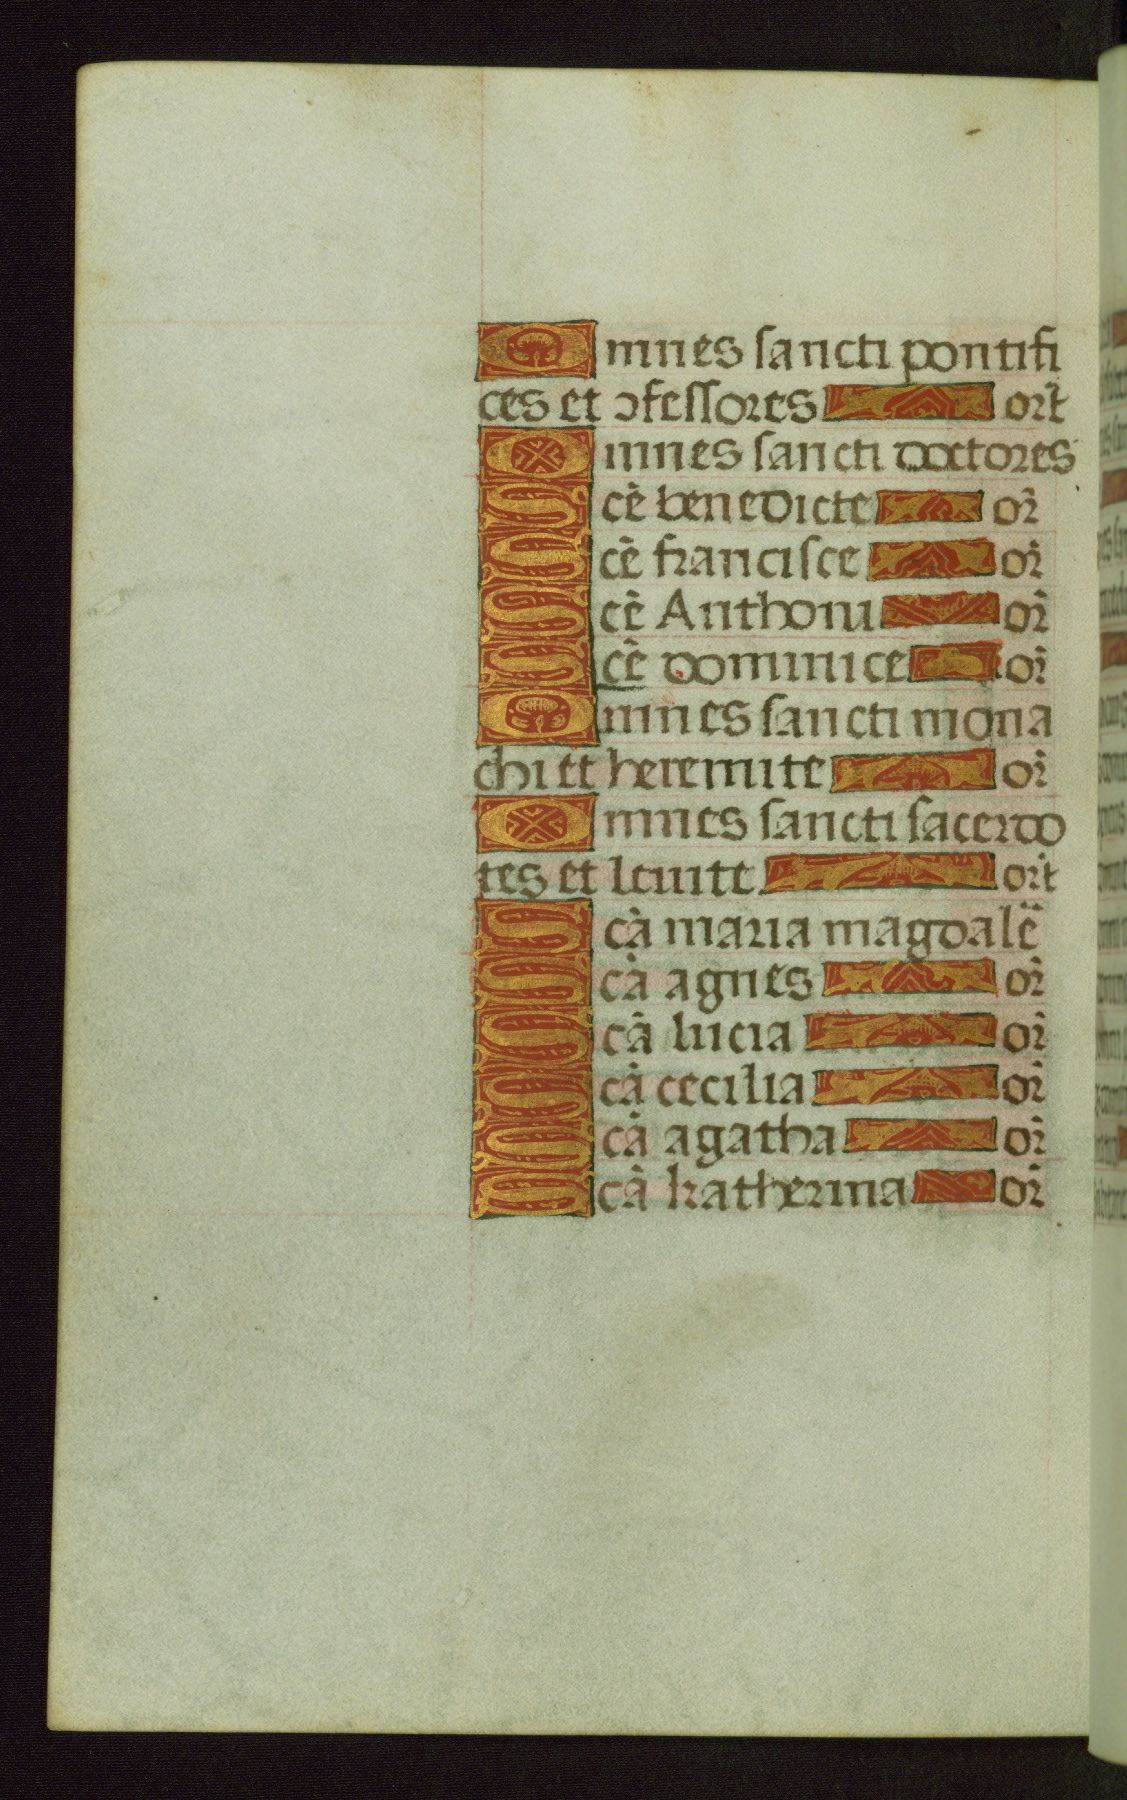 Omnes sancti pontifi
ces et ɔfessores ort̃
Omnes sancti doctores
Scẽ benedicte or̃
Scẽ francisce or̃
Scẽ Anthoni or̃
Scẽ dominice or̃
Omnes sancti mona
chi et heremite or̃
Omnes sancti sacerdo
tes et leuite or̃t
Scã maria magdalẽ
Scã agnes or̃
Scã lucia or̃
Scã cecilia or̃
Scã agatha or̃
Scã katherina or̃